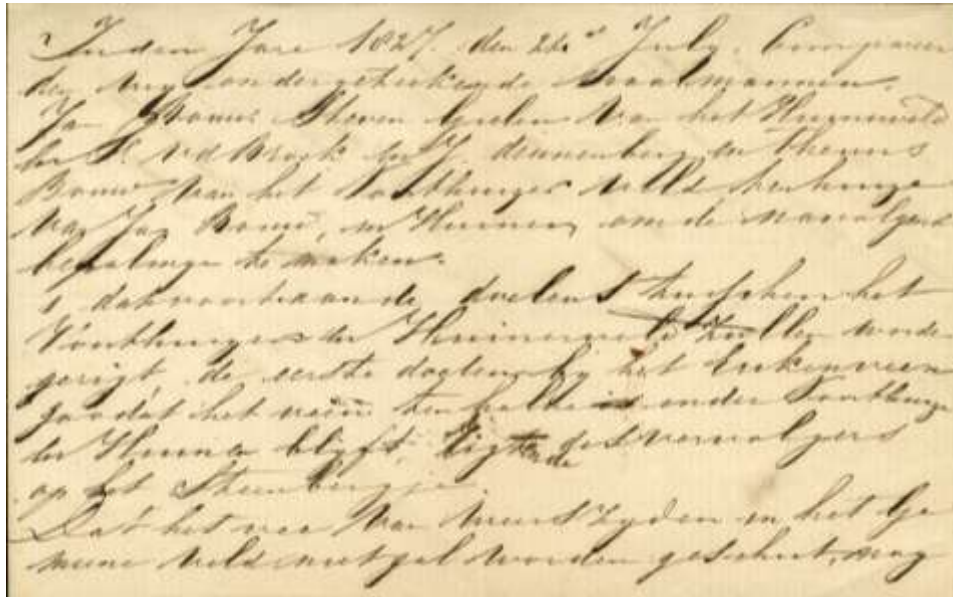 In den Jare 1827. den 22st July. Compareer
den wy ondergetekende maalmannen.
Jan Bouw Steven Geelen van het Huinerveld
en R. vd Broek en J. dannenberg en Theunis
Bouw van het Voorthuizer veld
van Jan Bouw, in Huinen, om de navolgend
bepalinge te maken.
1 dat voorstaande doelens tusschen het
Voorthuizer en Huinerveld zullen worde
gerigt, de eerste doelen by het Enkenveen
zoo dat het veen ten halve onder Voorthuize
en Huinen blyft, ligtende vervolgens
op het Steenbergje.
Dat het vee van weerszyden in het Ge
meene veld niet zal worden geschut, mog